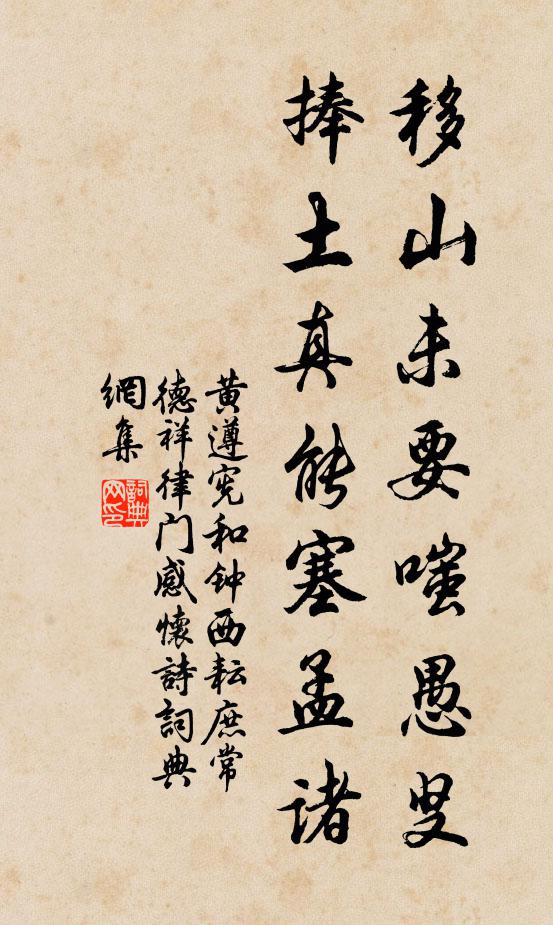 移山未要嗤愚叟
捧土真能塞孟诸
黄遵宪和钟西耘庶常
德祥律门感懷詩詞典
網集
詞典
网印